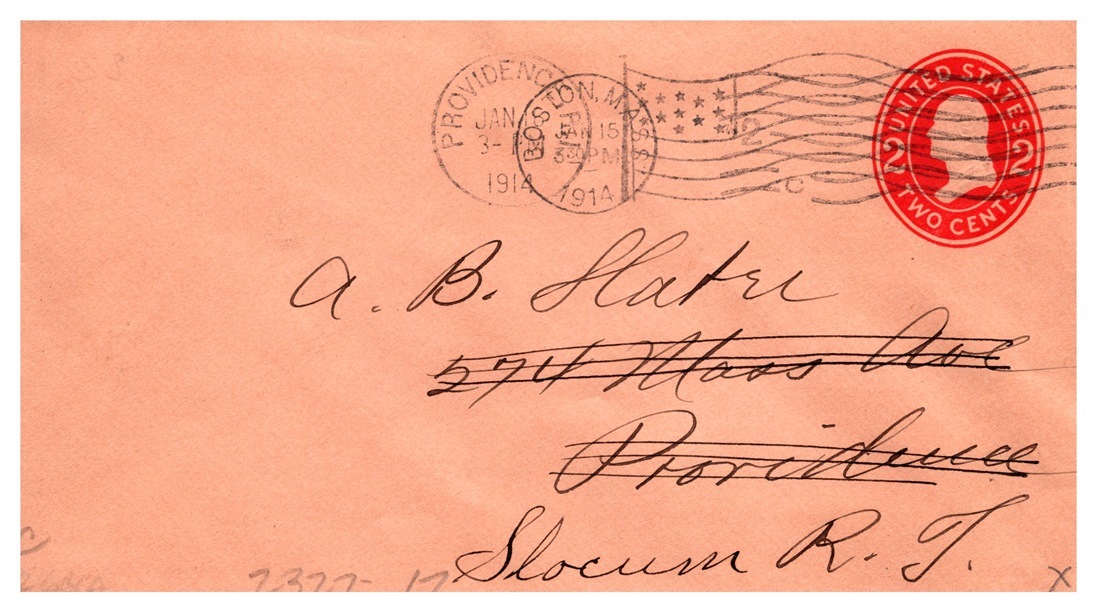 PROVIDENCE R.I.
JAN
3-
1914
BOSTON, MASS.
JAN 15
3 30 PM
1914
2
C
UNITED STATES
2 2
TWO CENTS
A. B. Slater
574 Mass Ave
Providence
Slocum R. I.
7377- 17
x